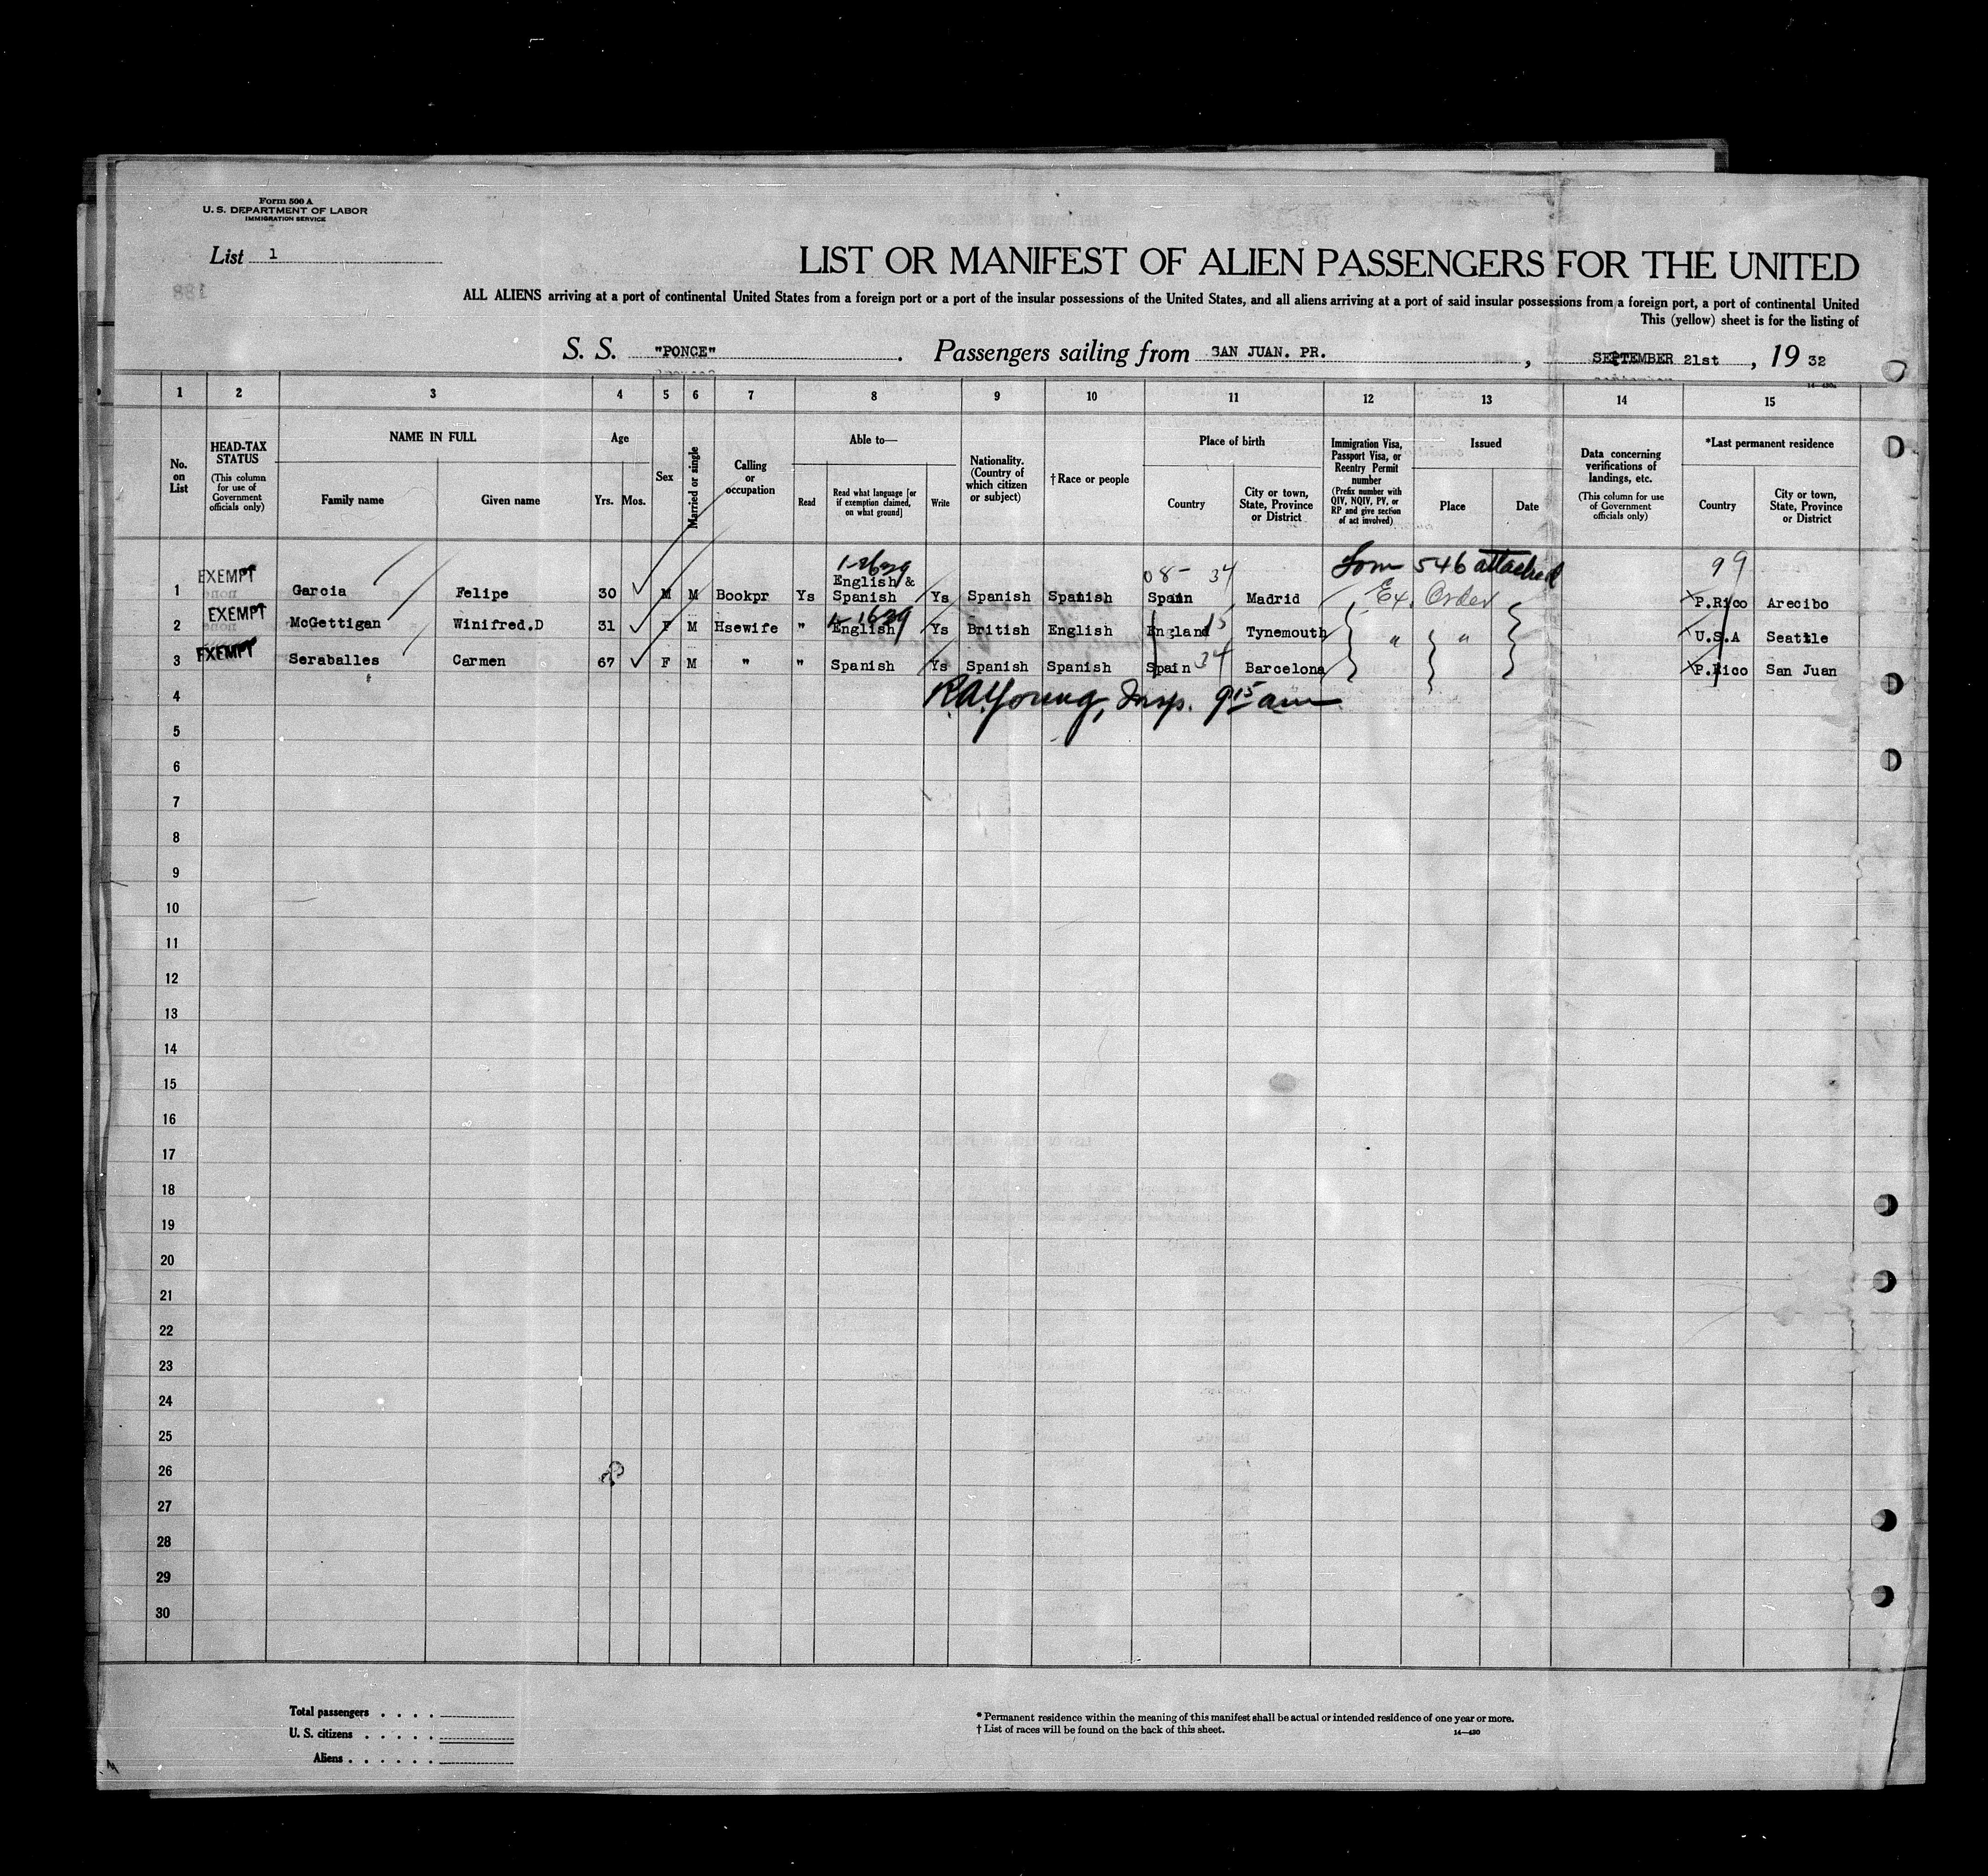 Form 500 A
U. S. DEPARTMENT OF LABOR
IMMIGRATION SERVICE
List 1
LIST OR MANIFEST OF ALIEN PASSENGERS FOR THE UNITED
ALL ALIENS arriving at a port of continental United States from a foreign port or a port of the insular possessions of the United States, and all aliens arriving at a port of said insular possessions from a foreign port, a port of continental United
This (yellow) sheet is for the listing of
S. S. "PONCE". Passengers sailing from SAN JUAN. PR., SEPTEMBER 21st, 19 32
1 2 3 4 5 6 7 8 9 10 11 12 13 14 15
No. on List
HEAD-TAX STATUS (This column for use of Government officials only)
NAME IN FULL
Family name Given name
Age
Yrs. Mos.
Sex
Married or single
Calling or occupation
Able to—
Read
Read what language [or if exemption claimed, on what ground]
Write
Nationality. (Country of which citizen or subject)
†Race or people
Place of birth
Country
City or town, State, Province or District
Immigration Visa, Passport Visa, or Reentry Permit number (Prefix number with QIV, NQIV, PV, or RP and give section of act involved)
Issued
Place Date
Data concerning verifications of landings, etc. (This column for use of Government officials only)
*Last permanent residence
Country
City or town, State, Province or District
08- 34 Form 546 attached 99
1 EXEMPT Garcia Felipe 30 M M Bookpr Ys English & Spanish Ys Spanish Spanish Spain Madrid Ex. Order P.Rico Arecibo
2 EXEMPT McGettigan Winifred.D 31 F M Hsewife " English Ys British English England 15 Tynemouth " " U.S.A Seattle
3 EXEMPT Seraballes Carmen 67 F M " " Spanish Ys Spanish Spanish Spain 34 Barcelona P.Rico San Juan
4 R.A. Young, Insp. 9 15 am
5
6
7
8
9
10
11
12
13
14
15
16
17
18
19
20
21
22
23
24
25
26
27
28
29
30
Total passengers . . . .
U. S. citizens . . . . .
Aliens . . . . . .
* Permanent residence within the meaning of this manifest shall be actual or intended residence of one year or more.
† List of races will be found on the back of this sheet. 14—430